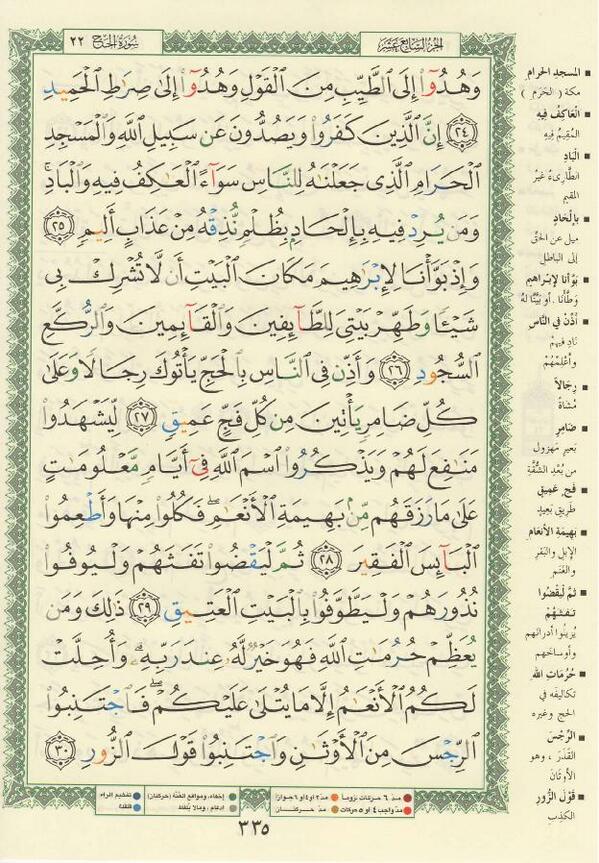 الجزء السابع عشر
سورة الحج ٢٢
وَهُدُوٓاْ إِلَى ٱلطَّيِّبِ مِنَ ٱلْقَوْلِ وَهُدُوٓاْ إِلَىٰ صِرَٰطِ ٱلْحَمِيدِ
٢٤ إِنَّ ٱلَّذِينَ كَفَرُواْ وَيَصُدُّونَ عَن سَبِيلِ ٱللَّهِ وَٱلْمَسْجِدِ
ٱلْحَرَامِ ٱلَّذِى جَعَلْنَٰهُ لِلنَّاسِ سَوَآءً ٱلْعَٰكِفُ فِيهِ وَٱلْبَادِ ۚ
وَمَن يُرِدْ فِيهِ بِإِلْحَادٍۭ بِظُلْمٍ نُّذِقْهُ مِنْ عَذَابٍ أَلِيمٍ ٢٥
وَإِذْ بَوَّأْنَا لِإِبْرَٰهِيمَ مَكَانَ ٱلْبَيْتِ أَن لَّا تُشْرِكْ بِى
شَيْـًٔا وَطَهِّرْ بَيْتِىَ لِلطَّآئِفِينَ وَٱلْقَآئِمِينَ وَٱلرُّكَّعِ
ٱلسُّجُودِ ٢٦ وَأَذِّن فِى ٱلنَّاسِ بِٱلْحَجِّ يَأْتُوكَ رِجَالًا وَعَلَىٰ
كُلِّ ضَامِرٍ يَأْتِينَ مِن كُلِّ فَجٍّ عَمِيقٍ ٢٧ لِّيَشْهَدُواْ
مَنَٰفِعَ لَهُمْ وَيَذْكُرُواْ ٱسْمَ ٱللَّهِ فِىٓ أَيَّامٍ مَّعْلُومَٰتٍ
عَلَىٰ مَا رَزَقَهُم مِّنۢ بَهِيمَةِ ٱلْأَنْعَٰمِ ۖ فَكُلُواْ مِنْهَا وَأَطْعِمُواْ
ٱلْبَآئِسَ ٱلْفَقِيرَ ٢٨ ثُمَّ لْيَقْضُواْ تَفَثَهُمْ وَلْيُوفُواْ
نُذُورَهُمْ وَلْيَطَّوَّفُواْ بِٱلْبَيْتِ ٱلْعَتِيقِ ٢٩ ذَٰلِكَ وَمَن
يُعَظِّمْ حُرُمَٰتِ ٱللَّهِ فَهُوَ خَيْرٌ لَّهُۥ عِندَ رَبِّهِۦ ۗ وَأُحِلَّتْ
لَكُمُ ٱلْأَنْعَٰمُ إِلَّا مَا يُتْلَىٰ عَلَيْكُمْ ۖ فَٱجْتَنِبُواْ
ٱلرِّجْسَ مِنَ ٱلْأَوْثَٰنِ وَٱجْتَنِبُواْ قَوْلَ ٱلزُّورِ ٣٠
■ المسجد الحرام
مكة (الحَرَم)
■ الْعَاكِفُ فِيهِ
المُقِيمُ فِيهِ
■ الْبَادِ
الطَّارِىءُ غيرُ
المقيم
■ بِإلْحَادٍ
ميل عن الحقّ
إلى الباطل
■ بَوَّأنا لإبْراهيم
وَطَّأنا. أو بَيَّنَّا لهُ
■ أذِّنْ في النَّاس
نَادِ فيهمْ
وأعْلِمْهُمْ
■ رِجَالاً
مُشاةً
■ ضَامِرٍ
بَعيرٍ مَهْزولٍ
من بُعْدِ الشُّقَّةِ
■ فَجٍّ عَميقٍ
طريقٍ بَعيدٍ
■ بَهيمَةِ الأنْعَامِ
الإبلِ والبَقرِ
والغنَمِ
■ ثمَّ لْيَقْضُوا
تَفَثَهُمْ
يُزيلُوا أدرانَهم
وأوساخَهم
■ حُرُمَاتِ الله
تكاليفَه في
الحجِّ وغيره
■ الرِّجْسَ
القَذَرَ، وهو
الأوثانُ
■ قَوْلَ الزُّورِ
الكذِبِ
مدّ ٦ حركات لزوماً مدّ ٢ أو ٤ أو ٦ جوازاً إخفاء، ومواقع الغُنَّة (حركتان) تفخيم الراء
مدّ واجب ٤ أو ٥ حركات مدّ حركتان إدغام، وما لا يُلفظ قلقلة
٣٣٥